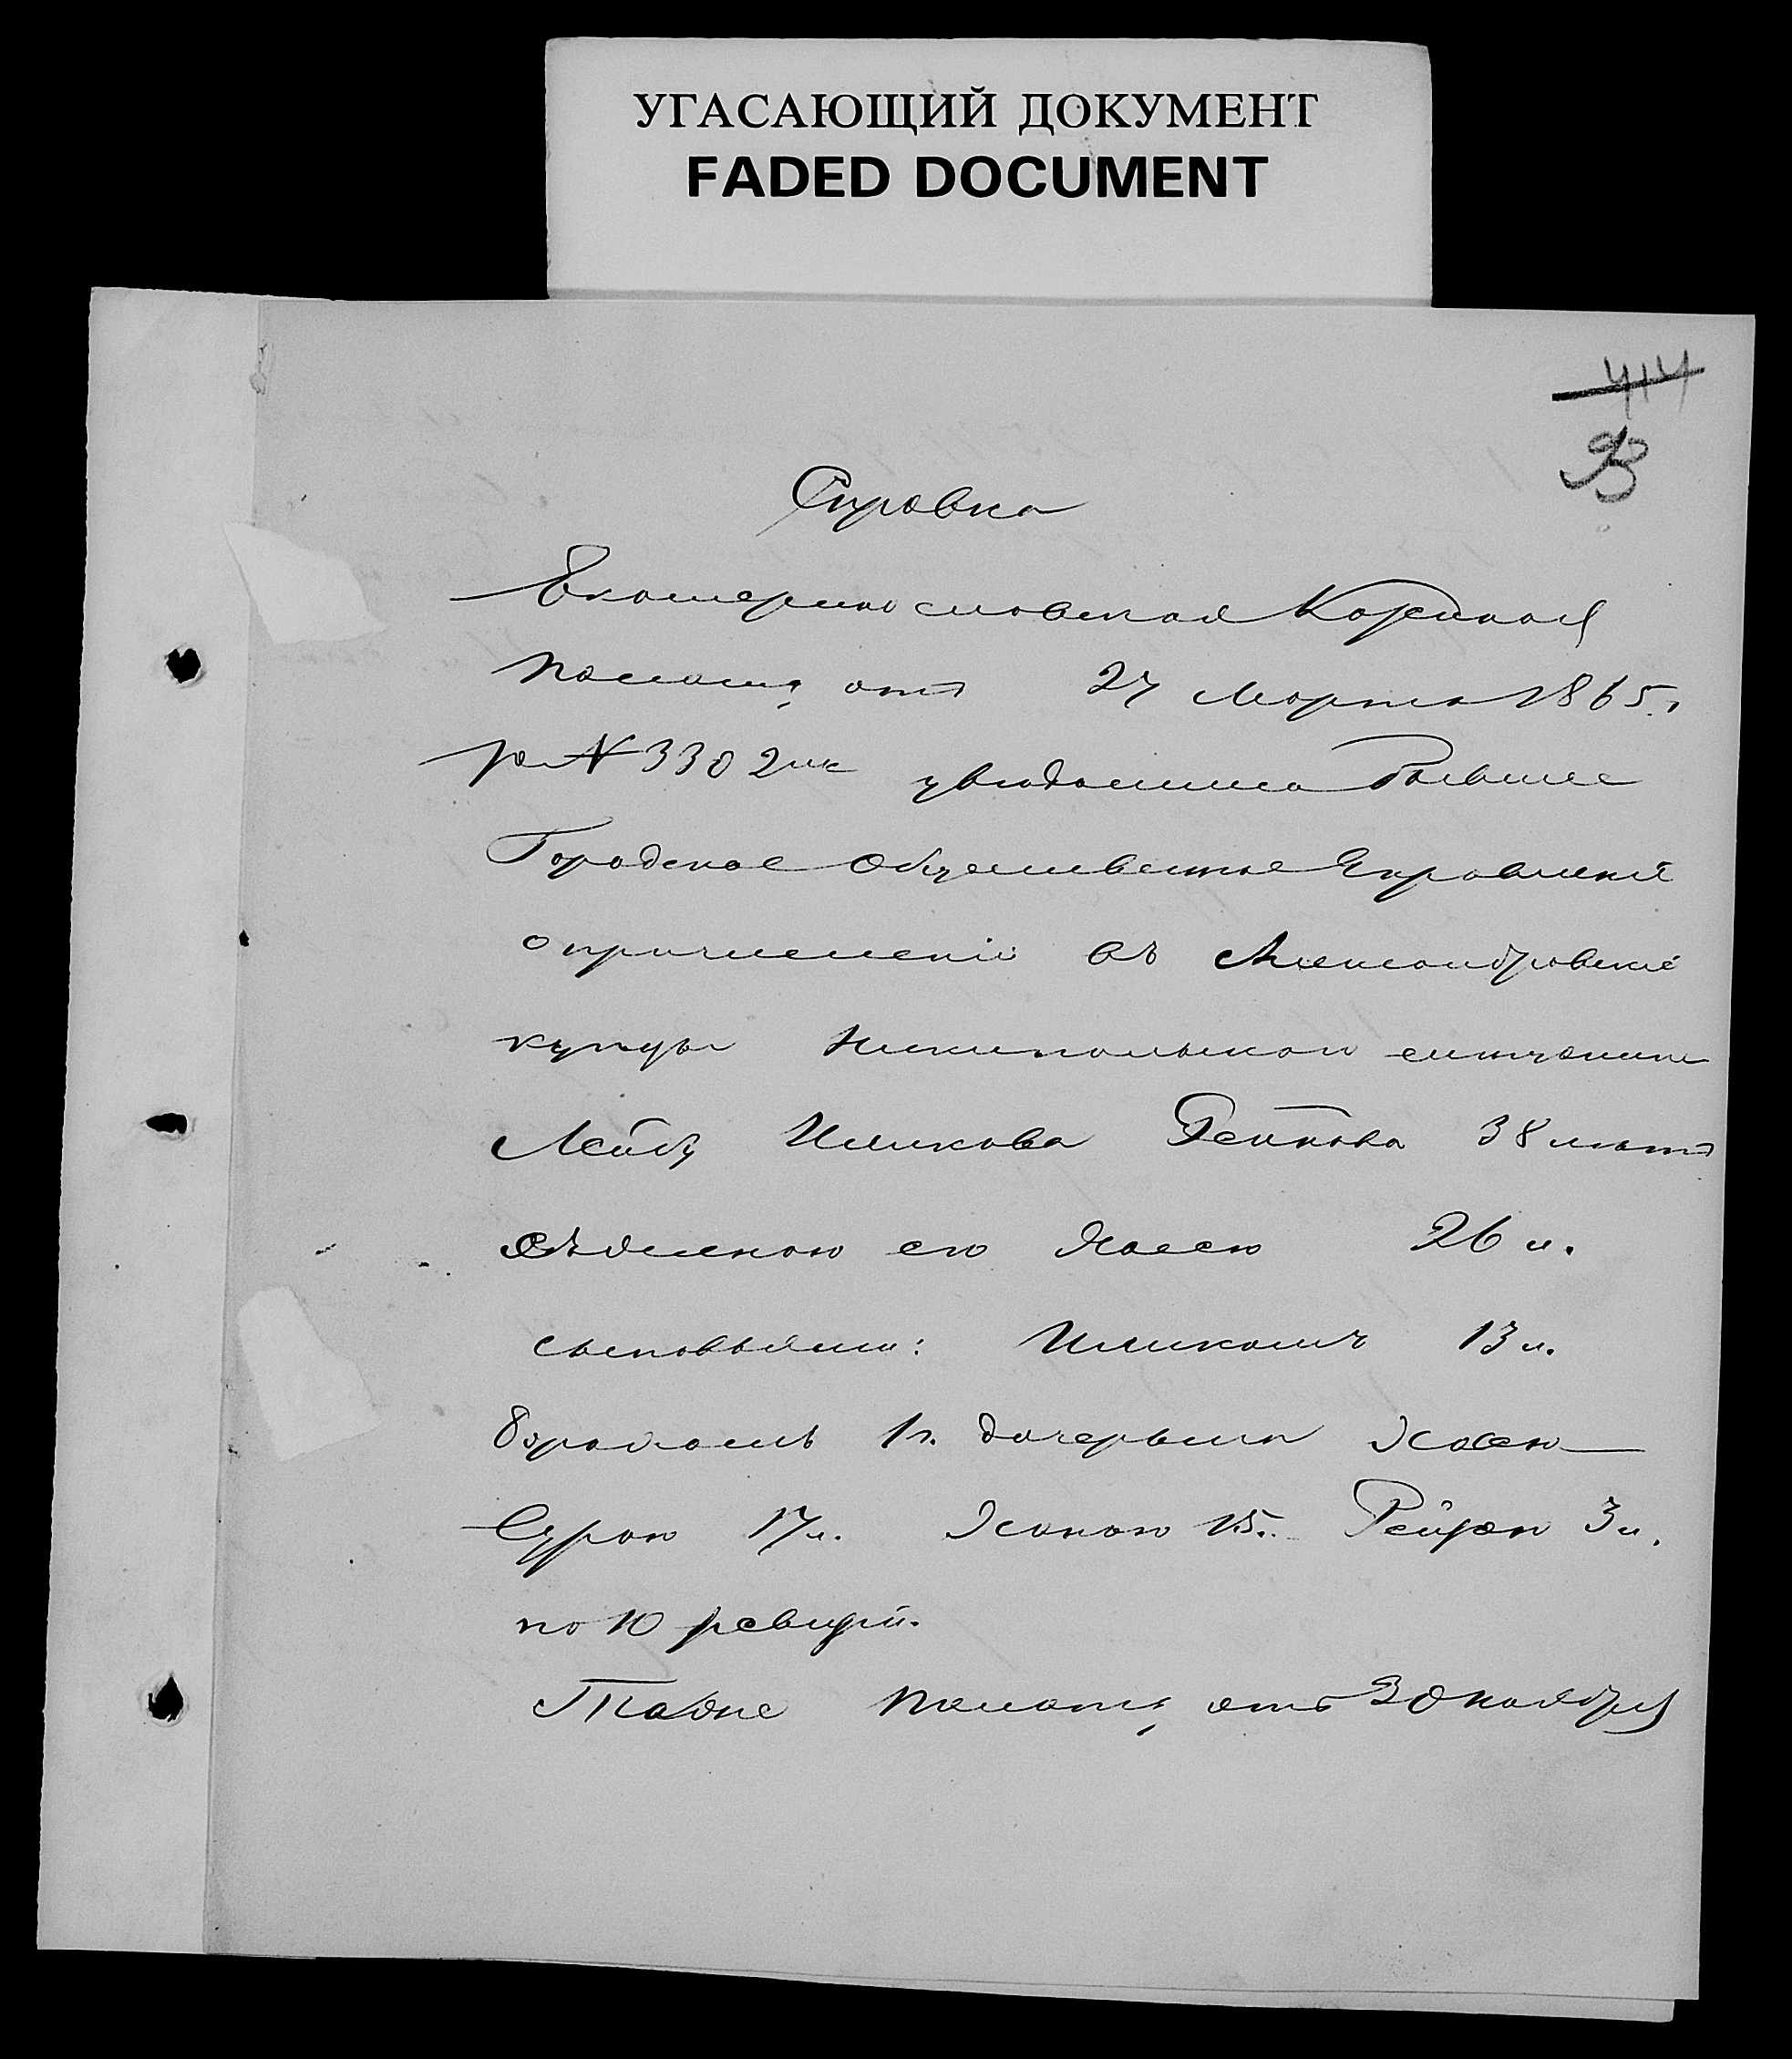 УГАСАЮЩИЙ ДОКУМЕНТ
FADED DOCUMENT
414
93
Справка
Екатеринославская Казенная
палата, отъ 27 Марта 1865.
за № 3302мъ увѣдомила бывшее
Городское Общественное Управленіе
о причисленіи въ Александровскіе
купцы Никипольскаго мѣщанина
Лейбу Ицикова 38 лѣтъ
съ женою его Хаею 26 л.
сыновьями: Ицикомъ 13 л.
1 г. дочерьми Хаею
Сурою 17 л. Ханою 15. Рейзею 3 л.
по 10 ревизіи.
Таже палата, отъ 30 ноября